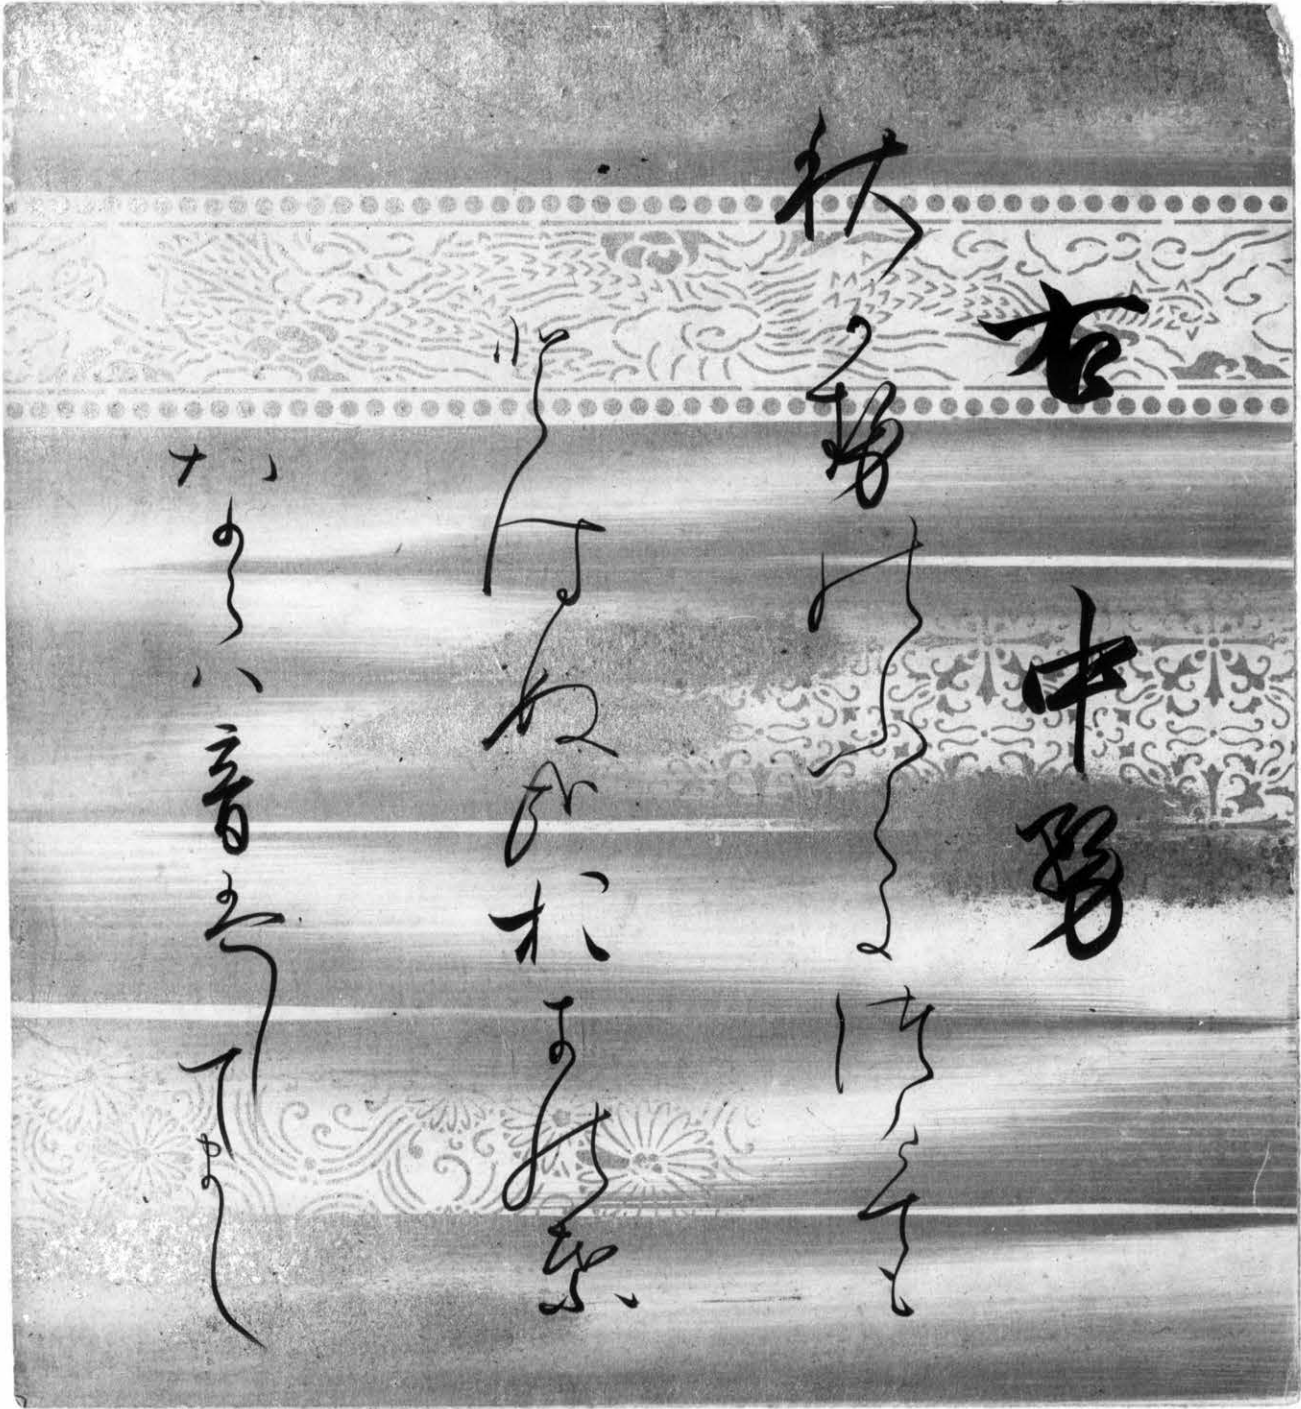 右 中務
秋か勢のふくにつけても
とはぬ哉おきの葉
ならハ音はしてまし